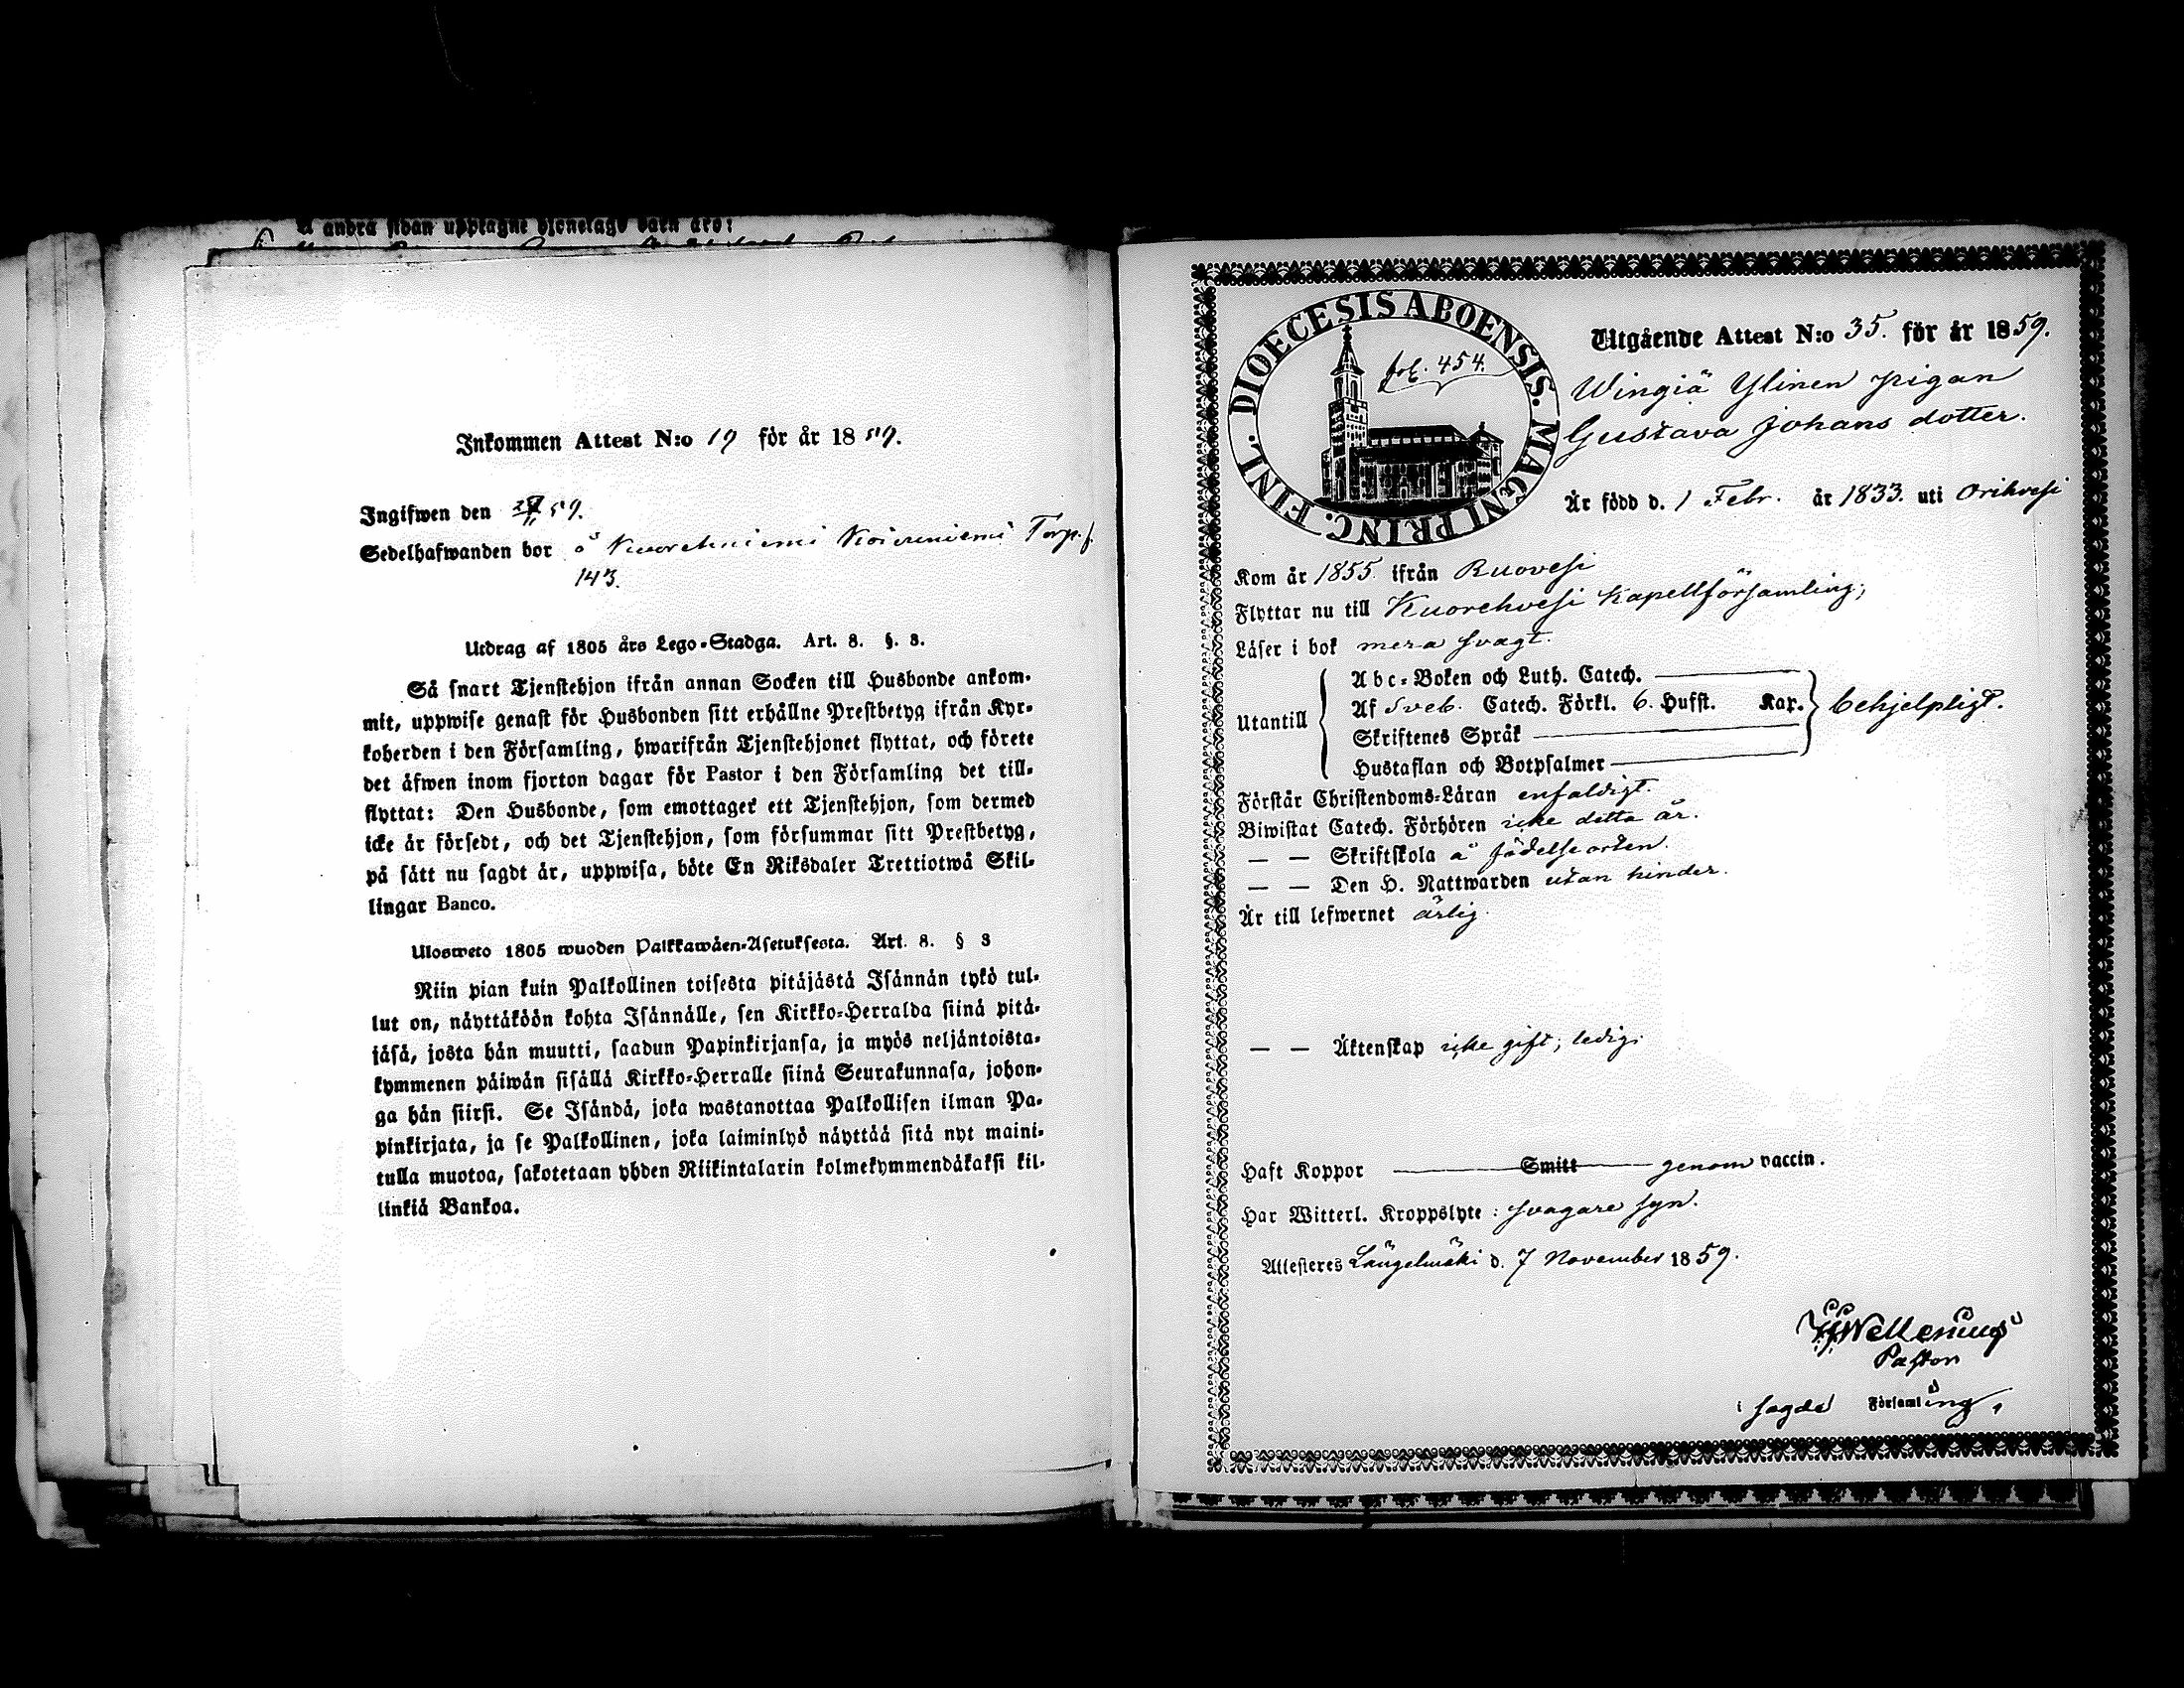 å andra sidan upptagne hjonelags barn äro:
Inkommen Attest N:o 19 för år 1859.
Ingifwen den 59.
Sedelhafwanden bor å Kuorehniemi Koiruniemi Torp. f.
143.
Utdrag af 1805 års Lego-Stadga. Art. 8. §. 3.
Så snart Tjenstehjon ifrån annan Socken till Husbonde ankom-
mit, uppwise genast för Husbonden sitt erhållne Prestbetyg ifrån Kyr-
koherden i den Församling, hwarifrån Tjenstehjonet flyttat, och förete
det äfwen inom fjorton dagar för Pastor i den Församling det till-
flyttat: Den Husbonde, som emottager ett Tjenstehjon, som dermed
icke är försedt, och det Tjenstehjon, som försummar sitt Prestbetyg,
på sätt nu sagdt är, uppwisa, böte En Riksdaler Trettiotwå Skil-
lingar Banco.
Ulosweto 1805 wuoden Palkkawäen-Asetuksesta. Art. 8. § 3
Niin pian kuin Palkollinen toisesta pitäjästä Isännän tykö tul-
lut on, näyttäköön kohta Isännälle, sen Kirkko-Herralda siinä pitä-
jäsä, josta hän muutti, saadun Papinkirjansa, ja myös neljäntoista-
kymmenen päiwän sisällä Kirkko-Herralle siinä Seurakunnasa, johon-
ga hän siirsi. Se Isändä, joka wastanottaa Palkollisen ilman Pa-
pinkirjata, ja se Palkollinen, joka laiminlyö näyttää sitä nyt maini-
tulla muotoa, sakotetaan yhden Riikintalarin kolmekymmendäkaksi kil-
linkiä Bankoa.
DIOECESIS ABOENSIS. MAGNI PRINC. FINL.
fol. 454.
Utgående Attest N:o 35. för år 1859.
Wingiä Ylinen pigan
Gustava Johans dotter.
Är född d. 1 Febr. år 1833. uti Orihvesi
Kom år 1855. ifrån Ruovesi
Flyttar nu till Kuorehvesi Kapellförsamling;
Läser i bok mera svagt.
Utantill
Abc-Boken och Luth. Catech.
Af Sveb. Catech. Förkl. 6. Hufst. Kap.
Skriftenes Språk
Hustaflan och Botpsalmer
behjelpligt.
Förstår Christendoms-Läran enfaldigt.
Biwistat Catech. Förhören icke detta år.
— — Skriftskola å födelseorten.
— — Den H. Nattwarden utan hinder.
Är till lefwernet ärlig.
— — Äktenskap icke gift; ledig.
Haft Koppor Smitt genom vaccin.
Har Witterl. Kroppslyte: svagare syn.
Attesteres Längelmäki d. 7 November 1859.
Pastor
i sagde Församling.